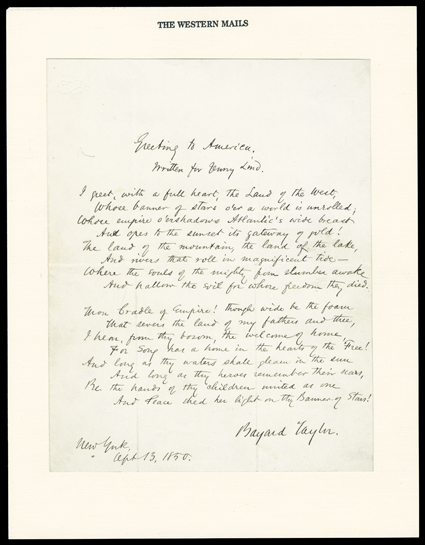 THE WESTERN MAILS
Greeting to America.
Written for Jenny Lind.
I greet, with a full heart, the Land of the West,
Whose banner of stars o'er a world is unrolled;
Whose empire o'ershadows Atlantic's wide breast
And opes to the sunset its gateway of gold!
The land of the mountain, the land of the lake,
And rivers that roll in magnificent tide—
Where the souls of the mighty from slumber awake
And hallow the soil for whose freedom they died.
Thou Cradle of Empire! though wide be the foam
That severs the land of my fathers and thee,
I hear, from thy bosom, the welcome of home,
For Song has a home in the hearts of the Free!
And long as thy waters shall gleam in the sun
And long as thy heroes remember their scars,
Be the hands of thy children united as one
And Peace shed her light on thy Banner of Stars!
Bayard Taylor.
New York,
Sept 13, 1850.